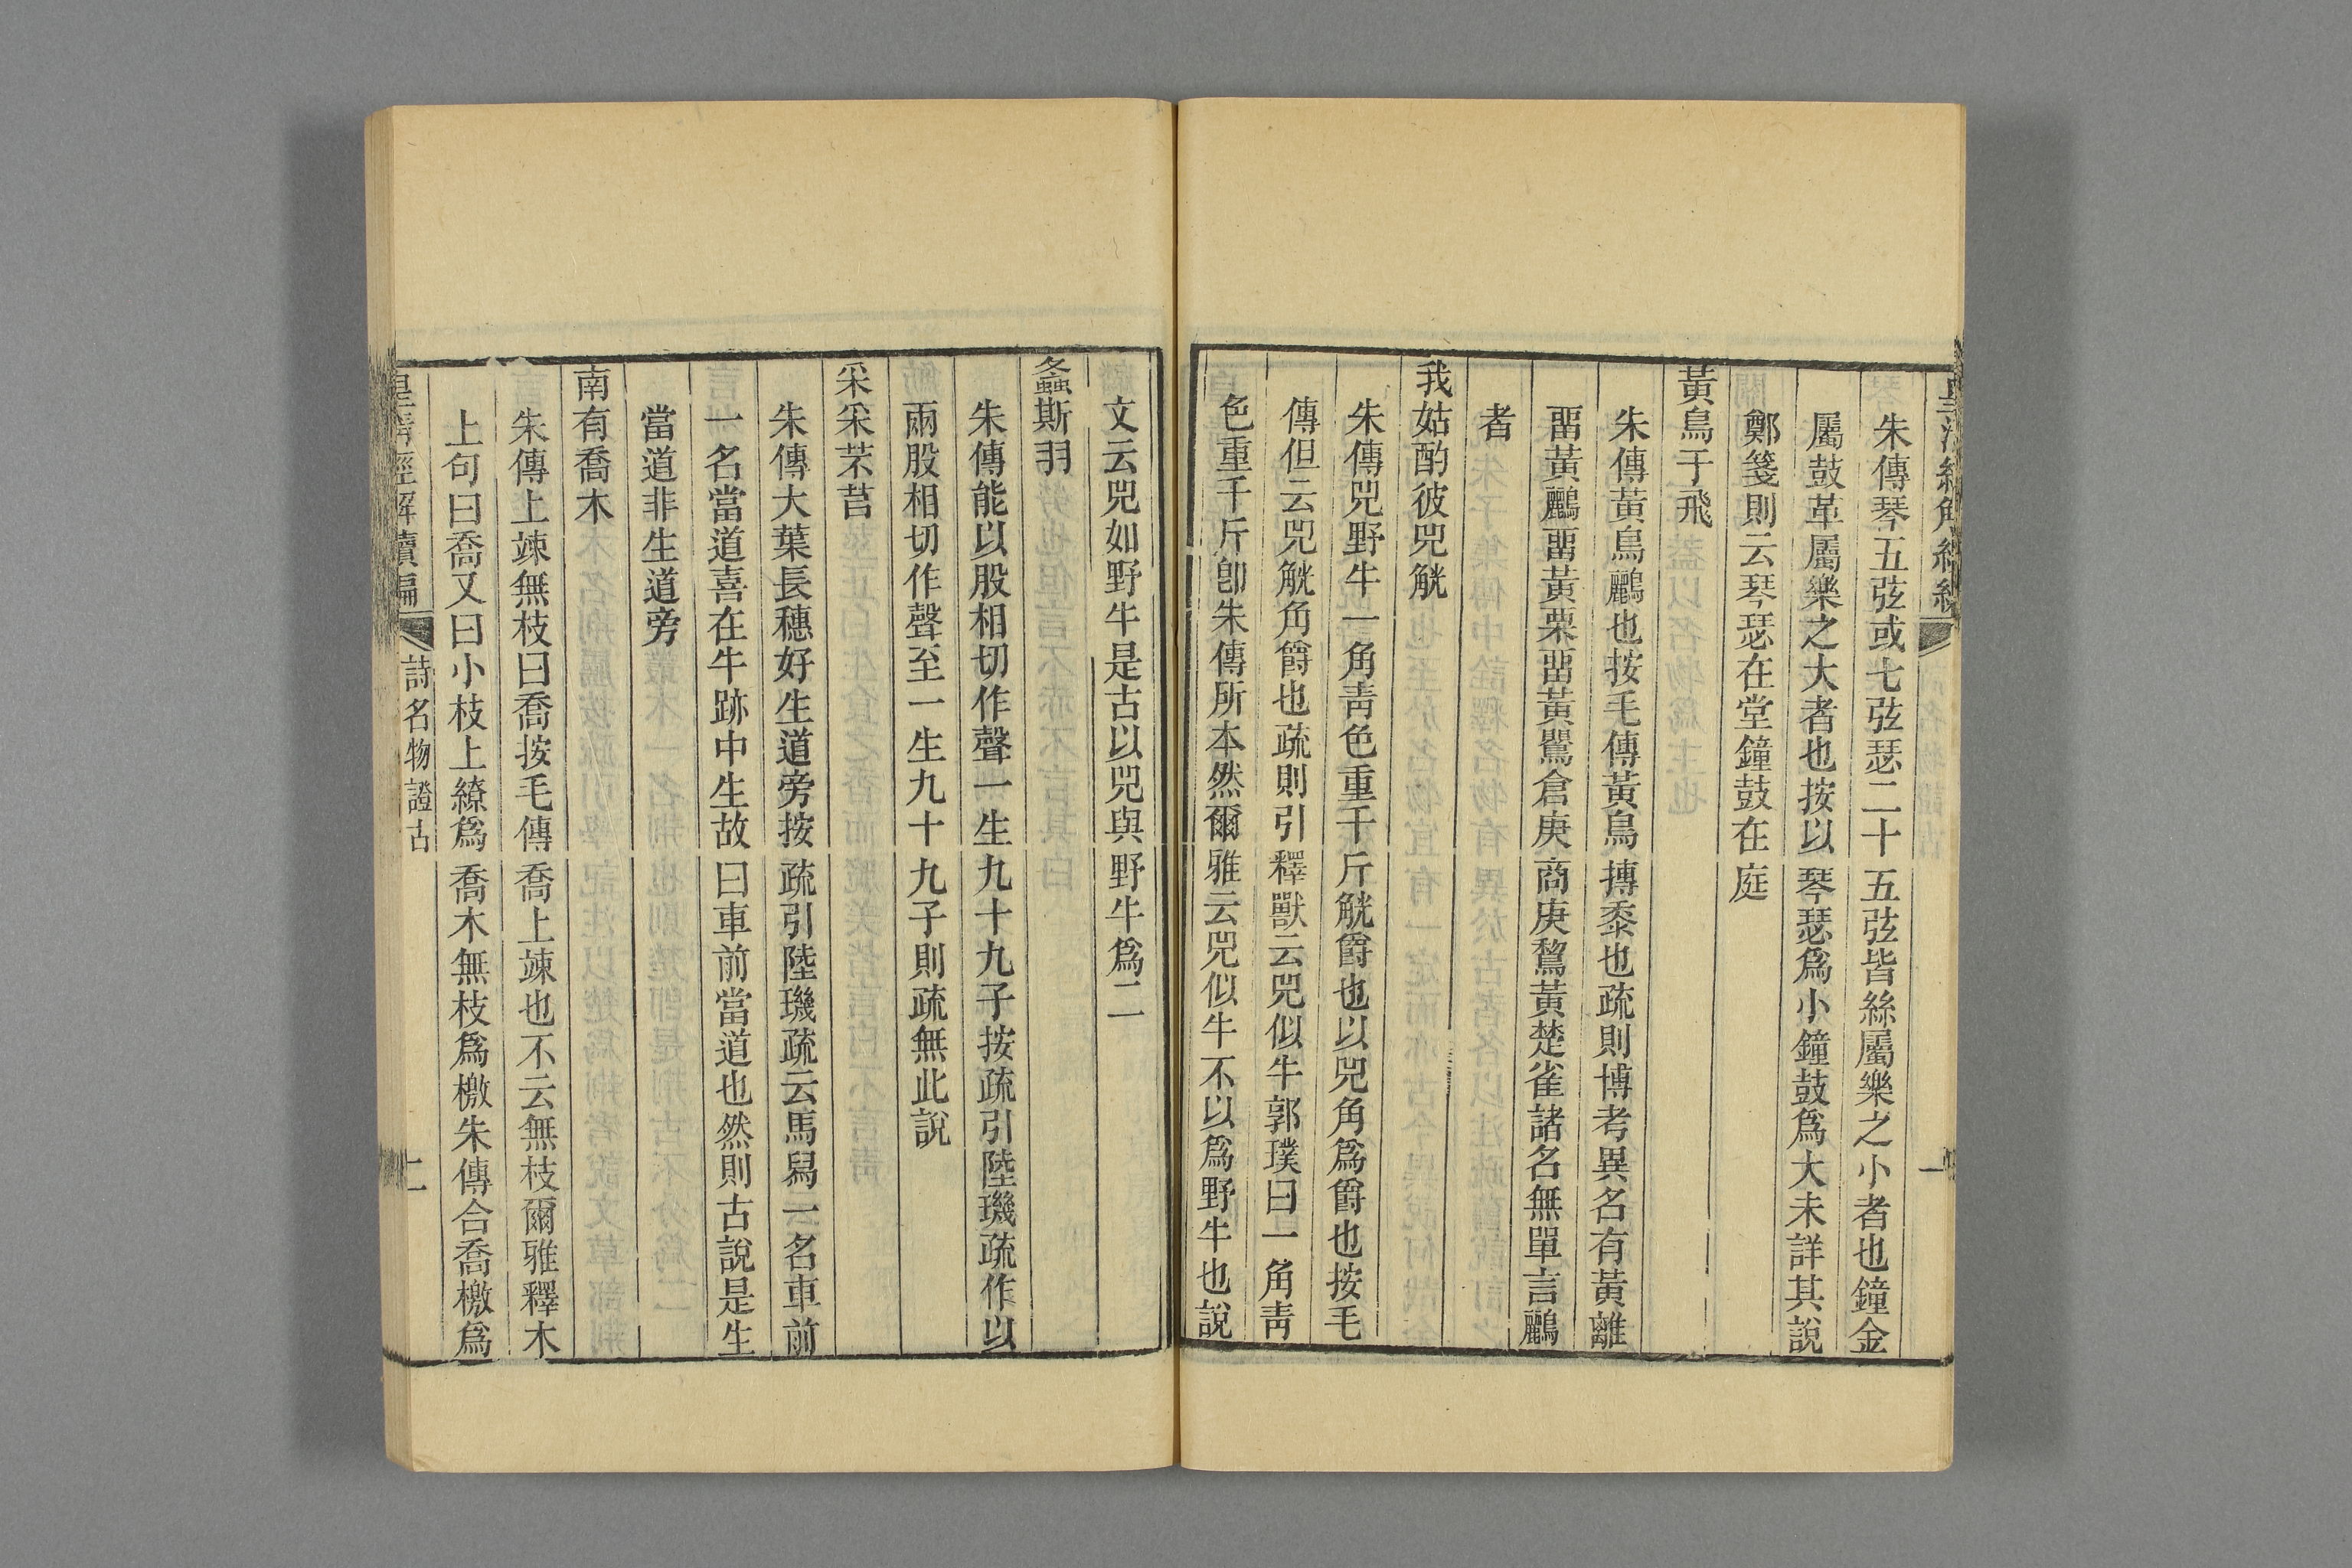 朱傳琴五弦或七弦瑟二十五弦皆絲屬樂之小者也鐘金
屬鼓革屬樂之大者也按以琴瑟爲小鐘鼓爲大未詳其說
鄭箋則云琴瑟在堂鐘鼓在庭
黃鳥于飛
朱傳黃鳥鸝也按毛傳黃鳥摶黍也疏則博考異名有黃離
畱黃鸝畱黃栗畱黃鸎倉庚商庚鵹黃楚雀諸名無單言鸝
者
我姑酌彼兕觥
朱傳兕野牛一角靑色重千斤觥爵也以兕角爲爵也按毛
傳但云兕觥角爵也疏則引釋獸云兕似牛郭璞曰一角靑
色重千斤卽朱傳所本然爾雅云兕似牛不以爲野牛也說
文云兕如野牛是古以兕與野牛爲二
螽斯羽
朱傳能以股相切作聲一生九十九子按疏引陸璣疏作以
兩股相切作聲至一生九十九子則疏無此說
采采芣苢
朱傳大葉長穗好生道旁按疏引陸璣疏云馬舄一名車前
一名當道喜在牛跡中生故曰車前當道也然則古說是生
當道非生道旁
南有喬木
朱傳上竦無枝曰喬按毛傳喬上竦也不云無枝爾雅釋木
上句曰喬又曰小枝上繚爲喬木無枝爲檄朱傳合喬檄爲
皇淸經解續編
詩名物證古
二